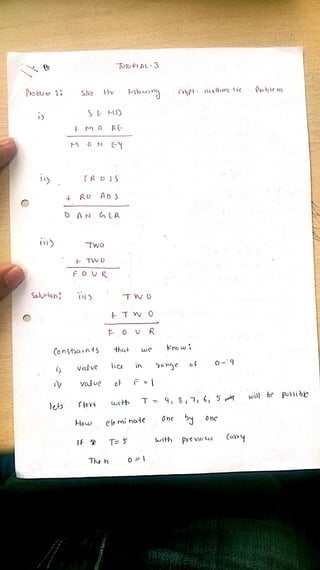 TUTORIAL-3
Problem 1: Solve the following crypt-arithmetic Problem
i) SEND
+ MORE
MONEY
ii) CROSS
+ ROADS
DANGER
iii) TWO
+ TWO
FOUR
Solution: iii) TWO
+ TWO
FOUR
Constraints that we know:
i) value lies in range of 0-9
ii) value of F = 1
lets start with T = 9, 8, 7, 6, 5 will be possible
Now eleminate one by one
If T = 5 with previous carry
Then O = 1